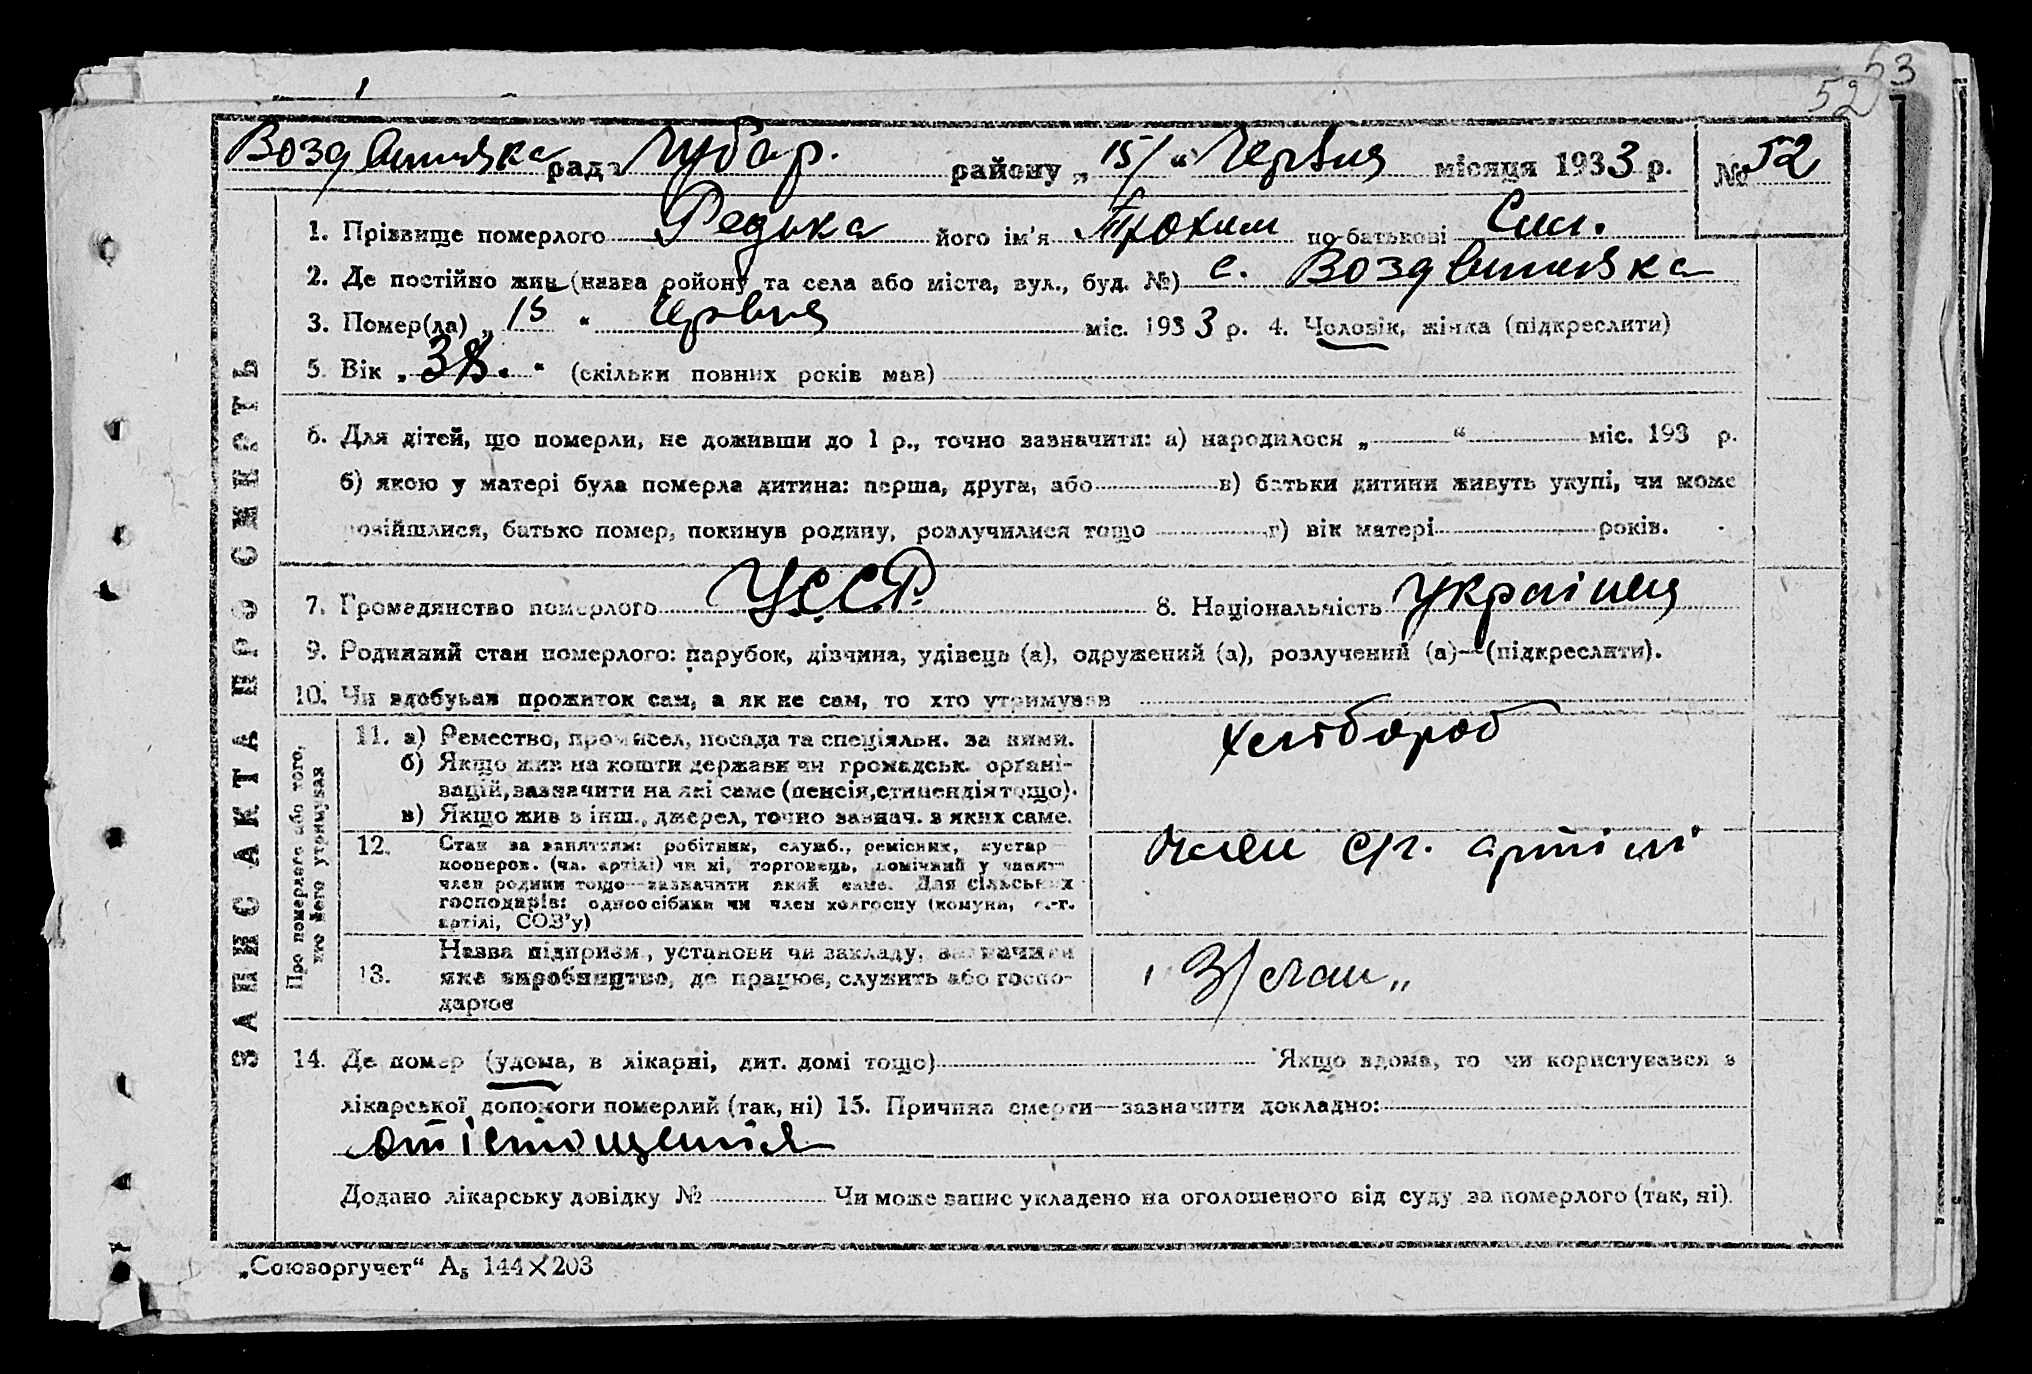 53
52
Воздвижівка рада Чубар. району „15/“ Червня місяця 1933 р. № 52
1. Прізвище померлого Редька його ім'я Трохим по-батькові Сим.
2. Де постійно жив (назва району та села або міста, вул., буд. №) с. Воздвижівка
3. Помер(ла) „15“ Червня міс. 1933 р. 4. Чоловік, жінка (підкреслити)
5. Вік „38.“ (скільки повних років мав)
6. Для дітей, що померли, не доживши до 1 р., точно зазначити: а) народилося „ “ міс. 193 р.
б) якою у матері була померла дитина: перша, друга, або в) батьки дитини живуть укупі, чи може
розійшлися, батько помер, покинув родину, розлучилися тощо г) вік матері років.
7. Громадянство померлого УССР. 8. Національність українця
9. Родинний стан померлого: парубок, дівчина, удівець (а), одружений (а), розлучений (а)—(підкреслити).
10. Чи здобував прожиток сам, а як не сам, то хто утримував
ЗАПИС АКТА ПРО СМЕРТЬ
Про померлого або того, хто його утримував
11. а) Ремество, промисел, посада та спеціяльн. за ними. хлібороб
б) Якщо жив на кошти держави чи громадськ. органі-
зацій, зазначити на які саме (пенсія, стипендія тощо).
в) Якщо жив з інш., джерел, точно зазнач. з яких саме.
12. Стан за заняттям: робітник, служб., ремісник, кустар— член с/г. артілі
кооперов. (чл. артілі) чи ні, торговець, помічний у занят—
член родини тощо—зазначити який саме. Для сільських
господарів: одноосібник чи член колгоспу (комуни, с.-г.
артілі, СОЗ'у)
13. Назва підприєм., установи чи закладу, зазначивши
яке виробництво, де працює, служить або госпо-
дарює
14. Де помер (удома, в лікарні, дит. домі тощо) Якщо вдома, то чи користувався з
лікарської допомоги померлий (так, ні) 15. Причина смерти—зазначити докладно:
от істощенія
Додано лікарську довідку № Чи може запис укладено на оголошеного від суду за померлого (так, ні).
„Союзоргучет“ А₅ 144×203